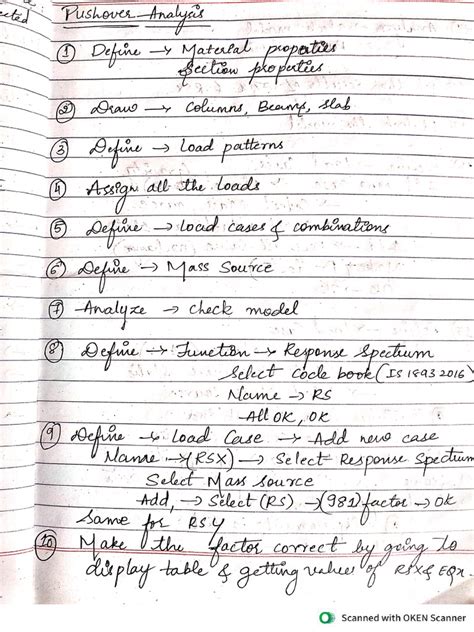 ected
Pushover Analysis
① Define → Material properties
Section properties
② Draw → Columns, Beams, slab
③ Define → Load patterns
④ Assign all the loads
⑤ Define → Load cases & combinations
⑥ Define → Mass Source
⑦ Analyze → check model
⑧ Define → Function → Response Spectrum
Select Code book (IS 1893 2016)
Name → RS
All OK, OK
⑨ Define → Load Case → Add new case
Name → (RSX) → Select Response Spectrum
Select Mass source
Add, → Select (RS) → (981) factor → OK
Same for RSY
⑩ Make the factor correct by going to
display table & getting values of RSX & EQX.
Scanned with OKEN Scanner